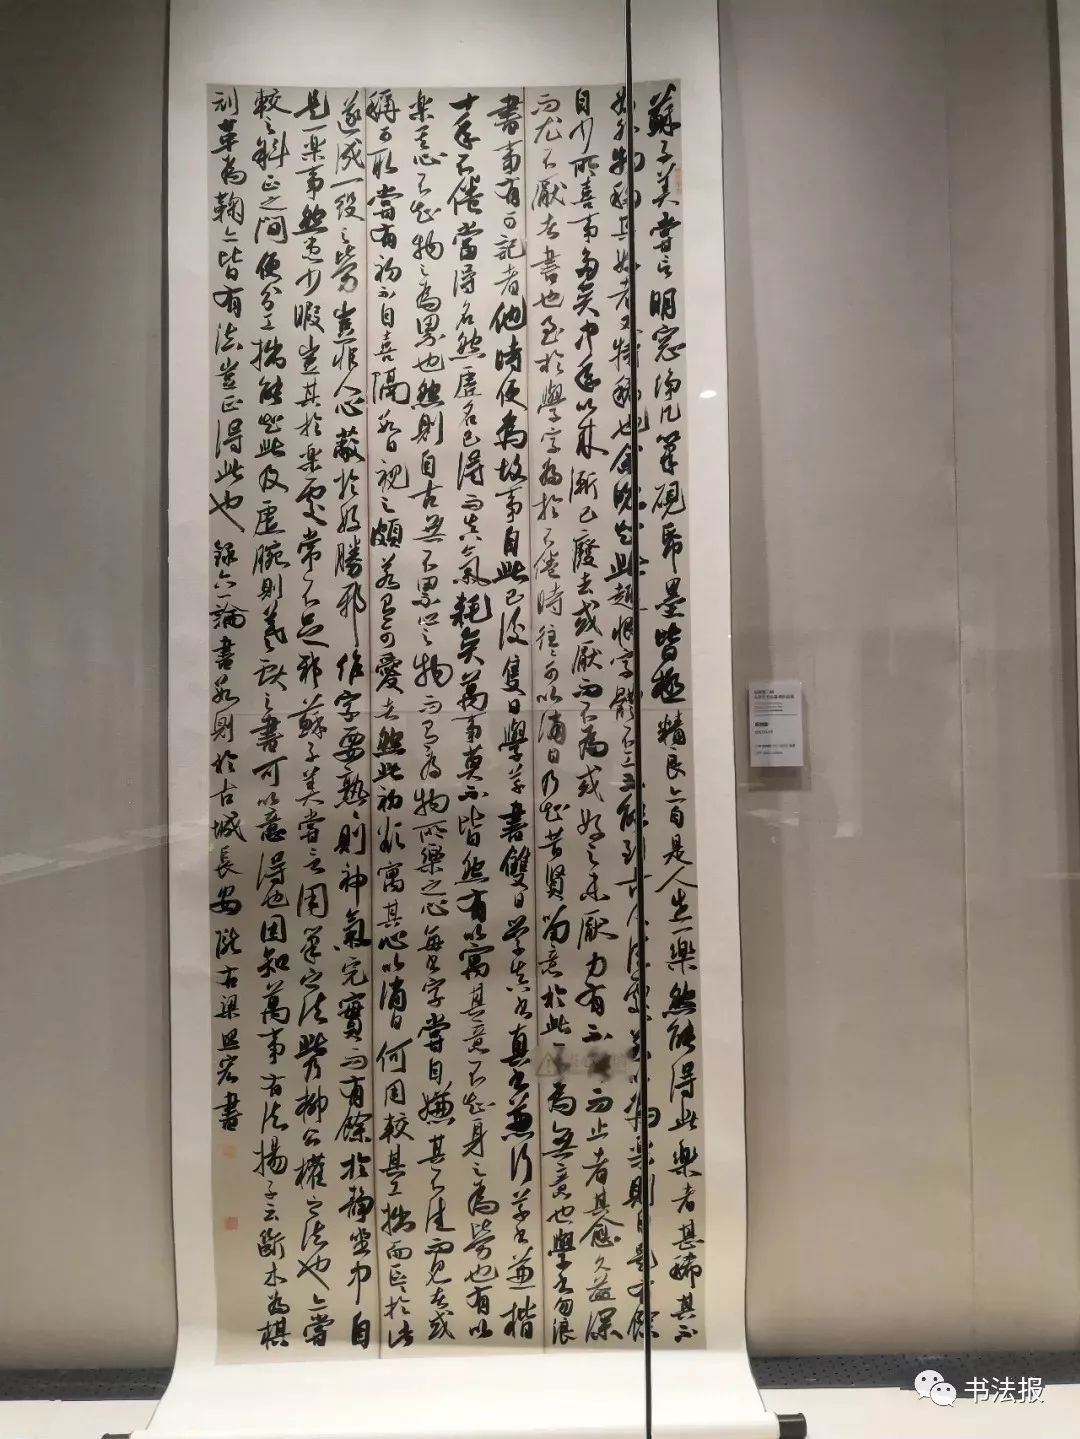 蘇子美嘗言明窓净几筆硯帋墨皆極精良亦自是人生一樂然能得此樂者甚稀其不
為外物移其好者又特稀也余晚知此趣恨字體不工不能到古人佳處若以為樂則自是有餘
自少所喜事多矣中年以來漸已廢去或厭而不為或好之未厭力有不而止者其愈久益深
而尤不厭者書也至於學字為於不倦時往往可以消日乃知昔賢留意於此為無意也學書勿浪
書事有可記者他時便為故事自此已後隻日學草書雙日學真書真書兼行草書兼楷
十年不倦當得名然虛名已得而真氣耗矣萬事莫不皆然有以寓其意不知身之為勞也有以
樂其心不知物之為累也然則自古無不累心之物而有為物所樂之心每書字嘗自嫌其不佳而見者或
稱可取嘗有初不自喜隔數日視之頗若有可愛者然此初欲寓其心以消日何用較其工拙而區於此
遂成一段之勞豈非人心蔽於好勝邪作字要熟熟則神氣完實而有餘於静坐中自
是一樂事然患少暇豈其於樂處常不足邪蘇子美嘗言用筆之法此乃柳公權之法也亦嘗
較之斜正之間便分工拙能知此及虛腕則羲獻之書可以意得也因知萬事有法揚子云斷木為棋
刓革為鞠亦皆有法豈正得此也錄六一論書數則於古城長安隴右梁照宏書
书法报